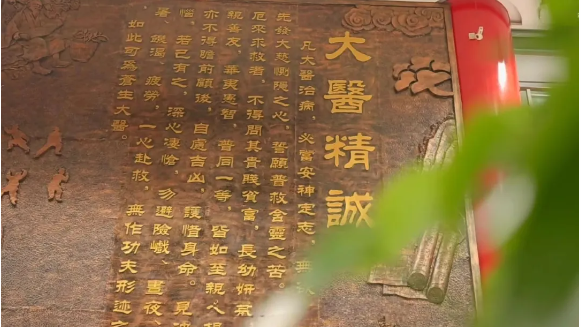 大醫精誠
凡大醫治病，必當安神定志，無
先發大慈惻隱之心，誓願普救含靈之苦。
厄來求救者，不得問其貴賤貧富，長幼妍蚩
親善友，華夷愚智，普同一等，皆如至親之想
亦不得瞻前顧後，自慮吉凶，護惜身命。見彼
惱，若己有之，深心淒愴，勿避險巇，晝夜、
暑，饑渴，疲勞，一心赴救，無作功夫形迹之
如此可為蒼生大醫。